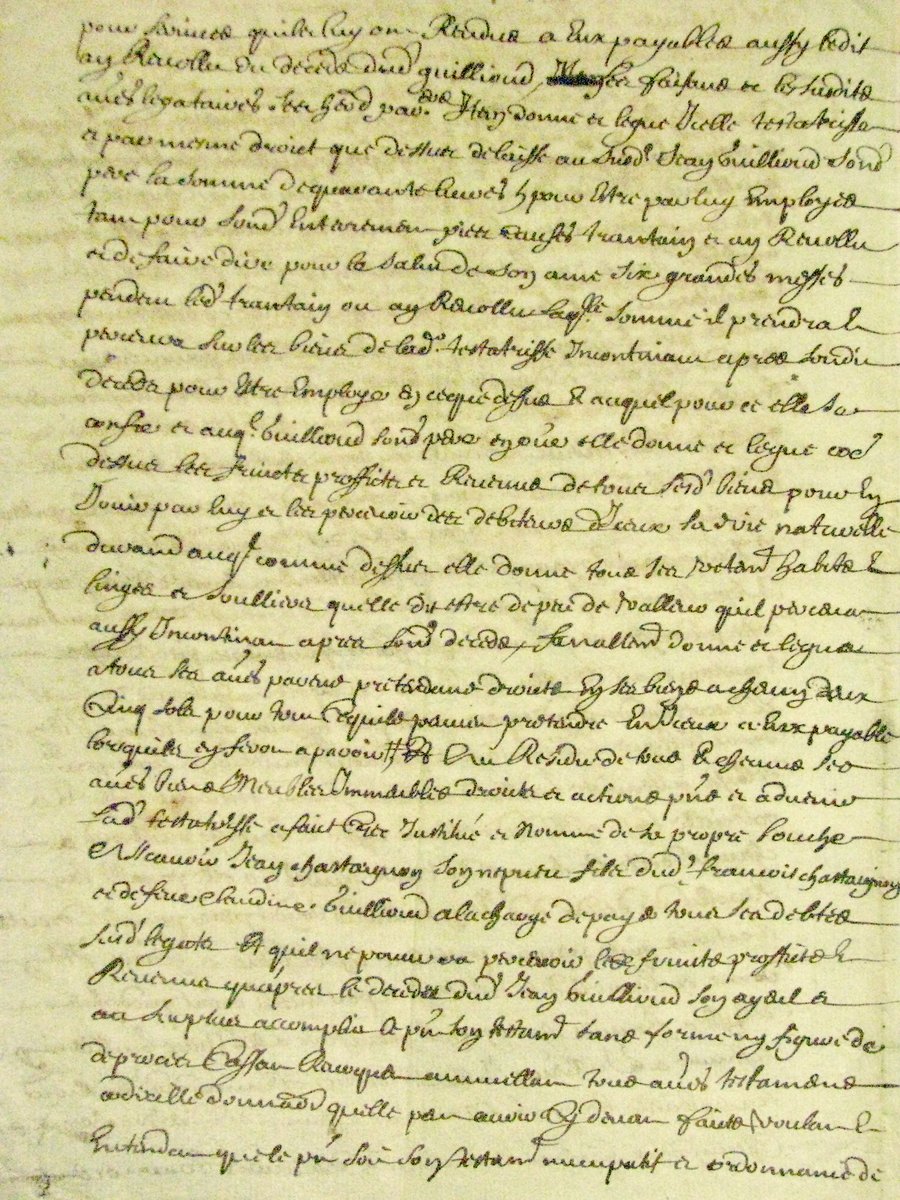 pour services quils luy ont Rendus a Eux payables aussy ledit
an Revollu du deceds dud guilliond faisans et les susdits
au^es legataires ses herd par^ers Item donne et legue Icelle testatrisse
et par mesme droict que dessus delaisse au susd Jean guilliond sond
pere la somme de quarante livres pour Estre par luy Employée
tam pour sond Enterremen trantain et an Revollu
et de faire dire pour le salut de son ame six grandes messes
penden led trantain ou an Revollu laq^lle somme il prendra Et
percevra sur les biens de lad testatrisse Incontinam apres sondit
deceds pour Estre Employe en ce que dessus Et auquel pour ce elle se
confie et auq^l guilliond sond pere elle donne et legue co^e
dessus les fruicts proffits et Revenus de tous sesd biens pour En
Jouir par luy et les percevoir des debiteurs d'Iceux sa vie naturelle
durand auq^l comme dessus elle donne tous ses vestem^t habits Et
linges et soulliers quelle dit estre de peu de valleur quil percevra
aussy Incontinan apres sond deceds, finallem^t donne et legue
a tous ses au^es parens pretendans droicts En ses biens a chacun d'eux
Cinq sols pour tout ce quils peuven pretendre En Iceux et Eux payable
lors quils apparoir Au Residu de tous Et chacuns ses
au^es biens Meubles Immeubles droicts et actions p^ns et advenir
lad testatrisse a faict Institué et Nommé de sa propre bouche
Assavoir Jean chastaignon son nepveu fils dud françois chastaignon
et de feue Claudine guilliond a la charge de payé tous ses debtes
susd legats Et quil ne pourra percevoir les fruicts proffits Et
Revenus qu'apres le deceds dud Jean guilliond son ayeul et
au surplus accomplir le p^nt son testam^t sans forme ny figure de
de proces Cassan Revoquan annullan tous au^es testamens
codicille donnaon quelle peu avoir Cy devan faicts voulan Et
Entendan que le p^nt soit son testam^t nuncupatif et ordonnance de